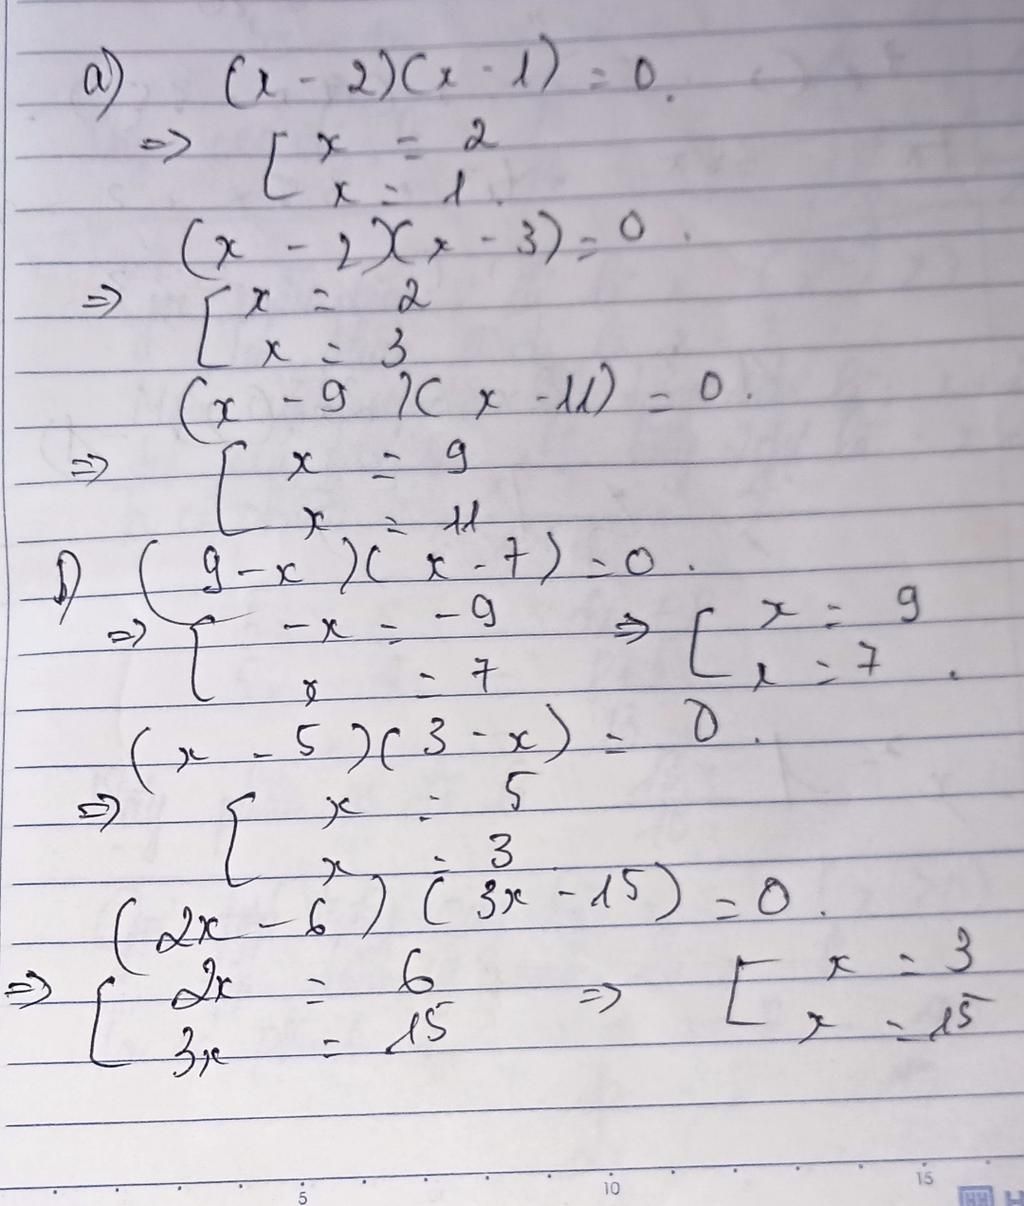 a) (x - 2)(x - 1) = 0.
=> [ x = 2
x = 1.
(x - 2)(x - 3) = 0.
=> [ x = 2
x = 3
(x - 9)(x - 11) = 0.
=> [ x = 9
x = 11
b) (9 - x)(x - 7) = 0.
=> [ -x = -9 => [ x = 9
x = 7 x = 7.
(x - 5)(3 - x) = 0.
=> [ x = 5
x = 3
(2x - 6)(3x - 15) = 0.
=> [ 2x = 6 => [ x = 3
3x = 15 x = 15
5 10 15